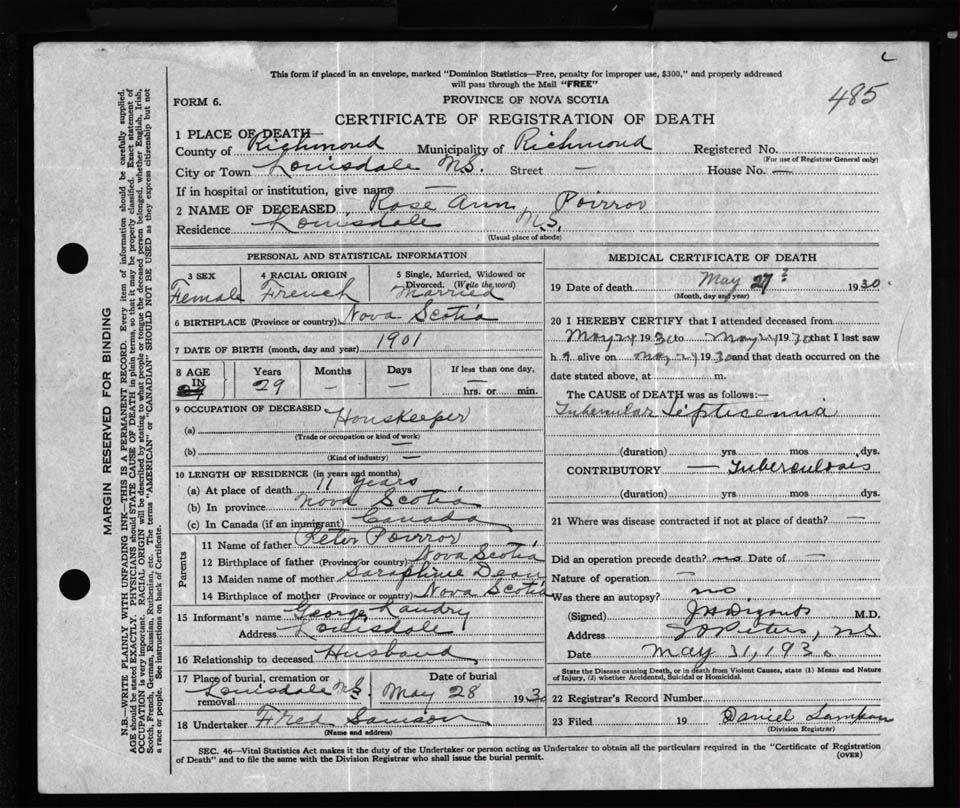 This form if placed in an envelope, marked "Dominion Statistics—Free, penalty for improper use, $300," and properly addressed
will pass through the Mail "FREE"
485
FORM 6.
PROVINCE OF NOVA SCOTIA
CERTIFICATE OF REGISTRATION OF DEATH
1 PLACE OF DEATH—
County of Richmond Municipality of Richmond Registered No.
(For use of Registrar General only)
City or Town Louisdale N.S. Street — House No. —
If in hospital or institution, give name —
2 NAME OF DECEASED Rose Ann Poirror
Residence Louisdale N.S.
(Usual place of abode)
PERSONAL AND STATISTICAL INFORMATION
3 SEX 4 RACIAL ORIGIN 5 Single, Married, Widowed or
Divorced. (Write the word)
Female French Married
6 BIRTHPLACE (Province or country) Nova Scotia
7 DATE OF BIRTH (month, day and year) 1901
8 AGE Years Months Days If less than one day,
IN 29 — — — hrs. or min.
9 OCCUPATION OF DECEASED Houskeeper
(a)
(Trade or occupation or kind of work)
(b) —
(Kind of industry) —
10 LENGTH OF RESIDENCE (in years and months)
(a) At place of death 11 years
(b) In province Nova Scotia
(c) In Canada (if an immigrant) Canada
Parents
11 Name of father Peter Poirror
12 Birthplace of father (Province or country) Nova Scotia
13 Maiden name of mother Saraphine Dean
14 Birthplace of mother (Province or country) Nova Scotia
15 Informant's name George Landry
Address Louisdale
16 Relationship to deceased Husband
17 Place of burial, cremation or Date of burial
removal Louisdale N.S. May 28 1930
18 Undertaker Fred Samson
(Name and address)
MEDICAL CERTIFICATE OF DEATH
19 Date of death May 27 1930
(Month, day and year)
20 I HEREBY CERTIFY that I attended deceased from
May 1930 to May 1930 that I last saw
h alive on May 1930 and that death occurred on the
date stated above, at m.
The CAUSE of DEATH was as follows:—
Tubercular Septicemia
(duration) yrs mos dys.
CONTRIBUTORY — Tuberculosis
(duration) yrs mos dys.
21 Where was disease contracted if not at place of death? —
Did an operation precede death? no Date of —
Nature of operation —
Was there an autopsy? no
(Signed) M.D.
Address St Peters, NS
Date May 31, 1930
State the Disease causing Death, or in death from Violent Causes, state (1) Means and Nature
of Injury, (2) whether Accidental, Suicidal or Homicidal.
22 Registrar's Record Number
23 Filed 19 Daniel
(Division Registrar)
SEC. 46—Vital Statistics Act makes it the duty of the Undertaker or person acting as Undertaker to obtain all the particulars required in the "Certificate of Registration
of Death" and to file the same with the Division Registrar who shall issue the burial permit.
(OVER)
MARGIN RESERVED FOR BINDING
N.B.—WRITE PLAINLY WITH UNFADING INK—THIS IS A PERMANENT RECORD. Every item of information should be carefully supplied.
AGE should be stated EXACTLY. PHYSICIANS should STATE CAUSE OF DEATH in plain terms, so that it may be properly classified. Exact statement of
OCCUPATION is very important. RACIAL ORIGIN will be described by stating to what people or tongue the deceased person belonged, whether English, Irish,
Scotch, French, German, Russian, Ruthenian, etc. The terms "AMERICAN" or "CANADIAN" SHOULD NOT BE USED as they express citizenship but not
a race or people. See instructions on back of Certificate.